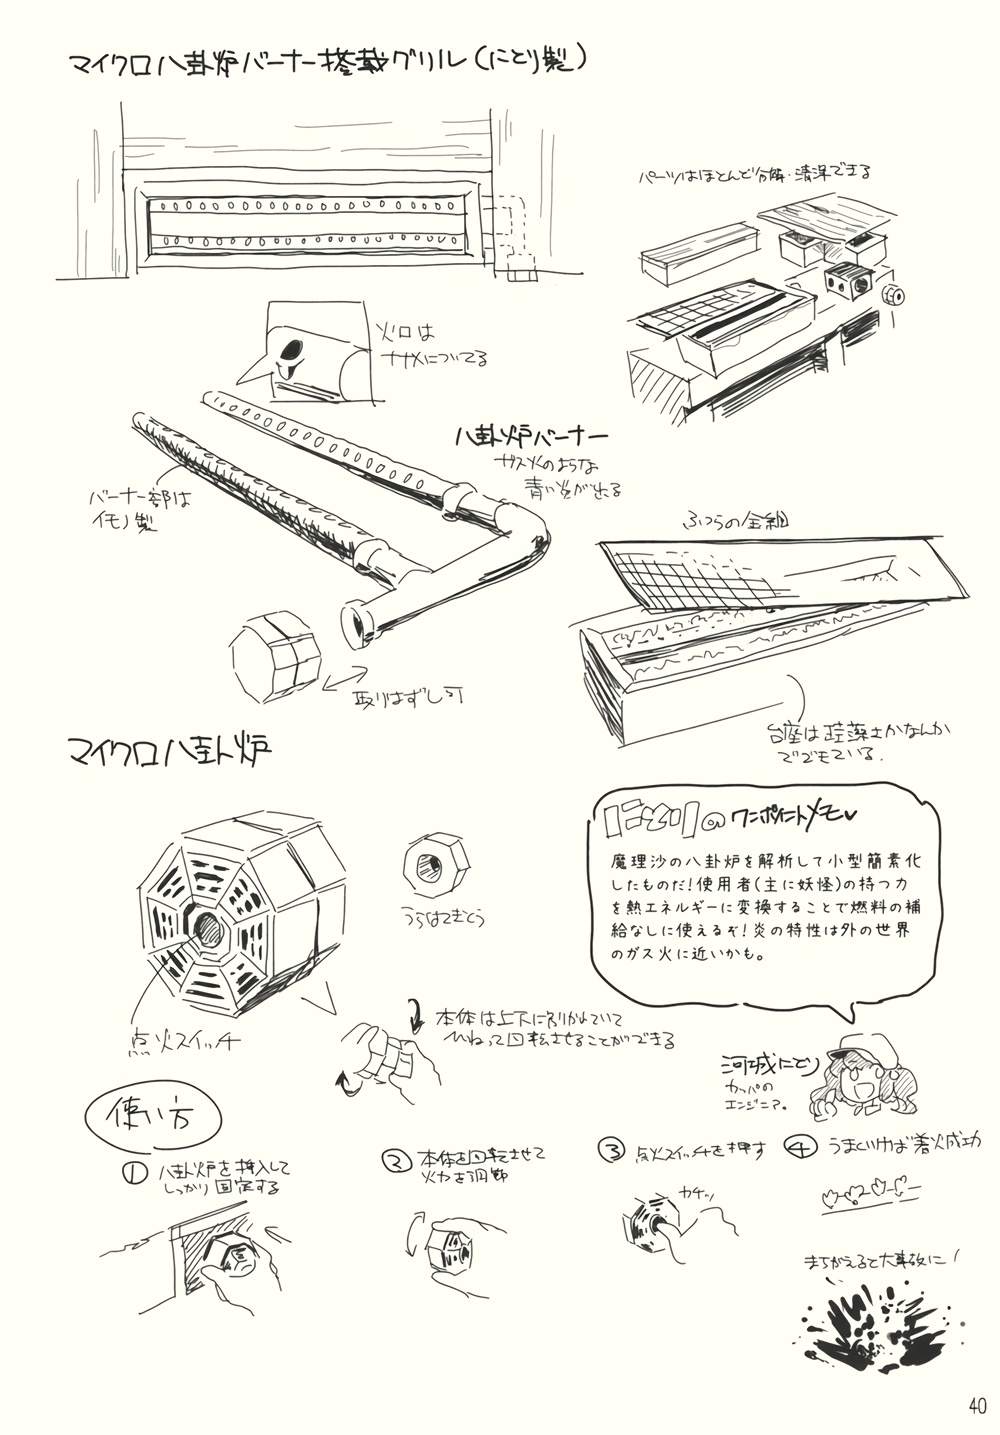 マイクロ八卦炉バーナー搭載グリル(にとり製)
パーツはほとんど分解・清潔できる
火口は
ナナメについてる
八卦炉バーナー
ガス火のような
青い炎が出る
バーナー部は
イモノ製
ふつうの金網
取りはずし可
台座は珪藻土かなんか
でできている.
マイクロ八卦炉
うらはてきとう
点火スイッチ
本体は上下に別かれていて
ひねって回転させることができる
にとりのワンポイントメモ♥
魔理沙の八卦炉を解析して小型簡素化
したものだ!使用者(主に妖怪)の持つ力
を熱エネルギーに変換することで燃料の補
給なしに使えるぞ!炎の特性は外の世界
のガス火に近いかも。
河城にとり
カッパの
エンジニア。
使い方
① 八卦炉を挿入して
しっかり固定する
② 本体を回転させて
火力を調節
③ 点火スイッチを押す
カチッ
④ うまくいけば着火成功
まちがえると大事故に!
40